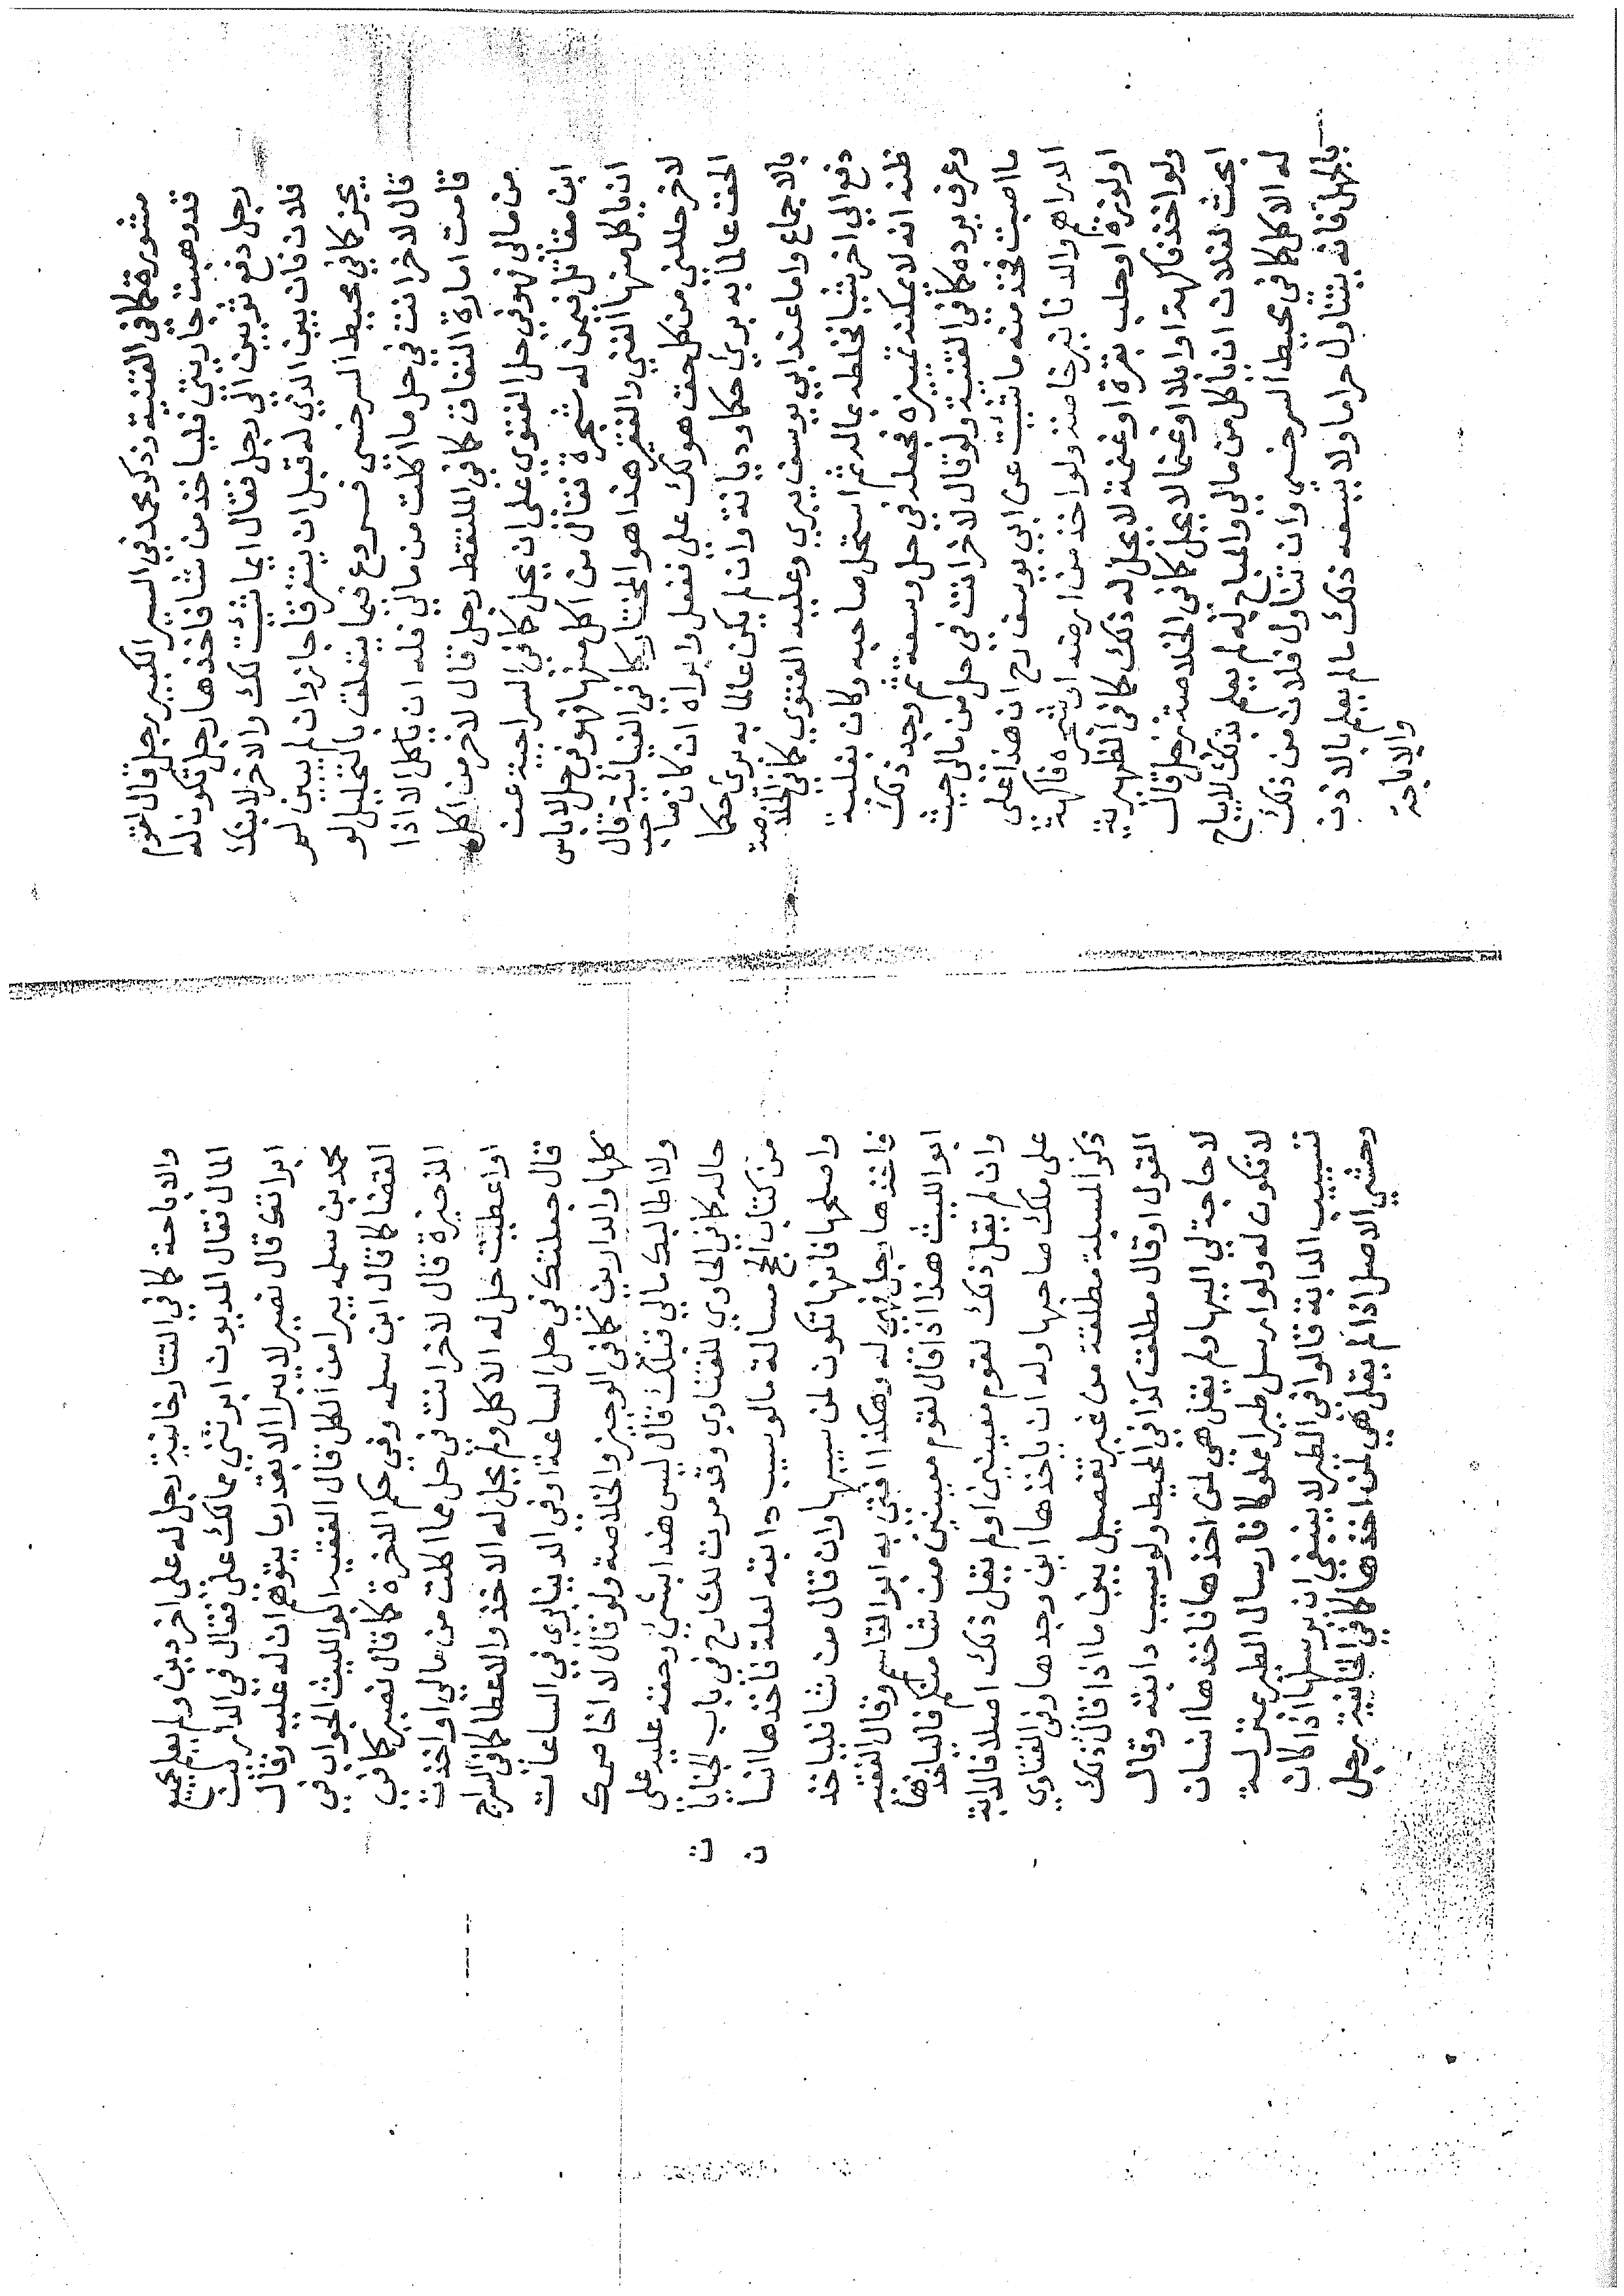 مشورة كما في القنية وذكر محمد في السير الكبير رجل قال لقوم
قد وهبت جاريتي فلياخذ من شا فاخذها رجل تكون له
رجل دفع ثوبين الي رجل فقال ايما شيت لك والاخر لابنك
فلان فان بين الذي له قبل ان يتفرقا جاز وان لم يبين لم
يجز كما في محيط السرخسي فـروع فيما يتعلق بالتحليل لو
قال لاخر انت في حل ما اكلت من مالي فله ان ياكل الا اذا
قامت امارة النفاق كما في الملتقط رجل قال لاخر من اكل
من مالي فهو في حل الفتوي علي ان يحل كما في السراجية عن
ابن مقاتل فيمن له شجرة فقال من اكل منها فهو في حل لا باس
ان ياكل منها الغني والفقير هذا هو المختار كما في الغياثية قال
لاخر حللني من كل حق هو لك علي ففعل وابراه ان كان صاحب
الحق عالما به بري حكما وديانة وان لم يكن عالما به بري حكما
بالاجماع واما عند ابي يوسف يبري وعليه الفتوي كما في الخلاصة
دفع الي اخر شيا فخلطه بماله ثم استحل صاحبه وكان بغلبة
ظنه انه لا يمكنه تمييزه فجعله في حل وسعه ثم وجد ذلك
وعرف يرده كما في القنية ولو قال لاخر انت في حل من مالي حيث
ما اصبت فخذ منه ما شيت عن ابي يوسف رح ان هذا علي
الدراهم والدنانير خاصة ولو اخذ من ارضه او شجره فاكهة
او لوزة او حلب بقرة او غنمة لا يحل له ذلك كما في الظهيرية
ولو اخذ فاكهة او ابلا او غنما لا يحل كما في الخلاصة رجل قال
ابحت لفلان ان ياكل من مالي والمباح له لم يعلم بذلك لا يباح
له الاكل كما في محيط السرخسي وان تناول فلان من ذلك
بالجهل فانه يتناول حراما ولا يسعه ذلك ما لم يعلم بالاذن
والاباحة
والاباحة كما في التتارخانية رجل له علي اخر دين ولم يعلم بجميع
المال فقال المديون ابرئتني مما لك علي فقال في الدارين
ابراتك قال نصير لا يبرا الا بقدر ما يتوهم ان له عليه وقال
محمد بن سلمه يبرا من الكل قال الفقيه ابو الليث الجواب في
القضا كما قال ابن سلمه وفي حكم الاخرة كما قال نصير كما في
الذخيرة قال لاخر انت في حل مما اكلت من مالي او اخذت
او اعطيت حل له الاكل ولم يحل له الاخذ والاعطا كما في السراج
قال جعلتك في حل الساعة او في الدينا بري في الساعات
كلها والدارين كما في الوجيز والخلاصة ولو قال لا اخاصمك
ولا اطالبك مالي قبلك قال ليس هذا بشي وحقه عليه علي
حاله كما في الحاوي للفتاوي وقد مرت للشارح في باب الجنايا
من كتاب الحج مسالة ما لو سيب دابته لعلة فاخذها انسا ن
واصلحها فانها تكون لمن سيبها وان قال من شا فلياخذ
فاخذها رجل فهي له وهكذا افتي به ابو القاسم وقال الفقيه
ابو الليث هذا اذا قال لقوم معينين من شا منكم فلياخذها
وان لم يقل ذلك لقوم معينين او لم يقل ذلك اصلا فالدابة
علي ملك صاحبها وله ان ياخذها اين وجدها وفي الفتاوي
ذكر المسيلة مطلقة من غير تفصيل بين ما اذا قال ذلك
القول او قال مطلقا كذا في المحيط ولو سيب دابته وقال
لا حاجة لي اليها ولم يقل هي لمن اخذها فاخذها انسان
لا تكون له ولو ارسل طيرا مملوكا فارسال الطير بمنزلة
تسييب الدابة قالوا في الطير لا ينبغي ان يرسلها اذا كان
وحشي الاصل اذا لم يقل هي لمن اخذها كما في الخانية رجل